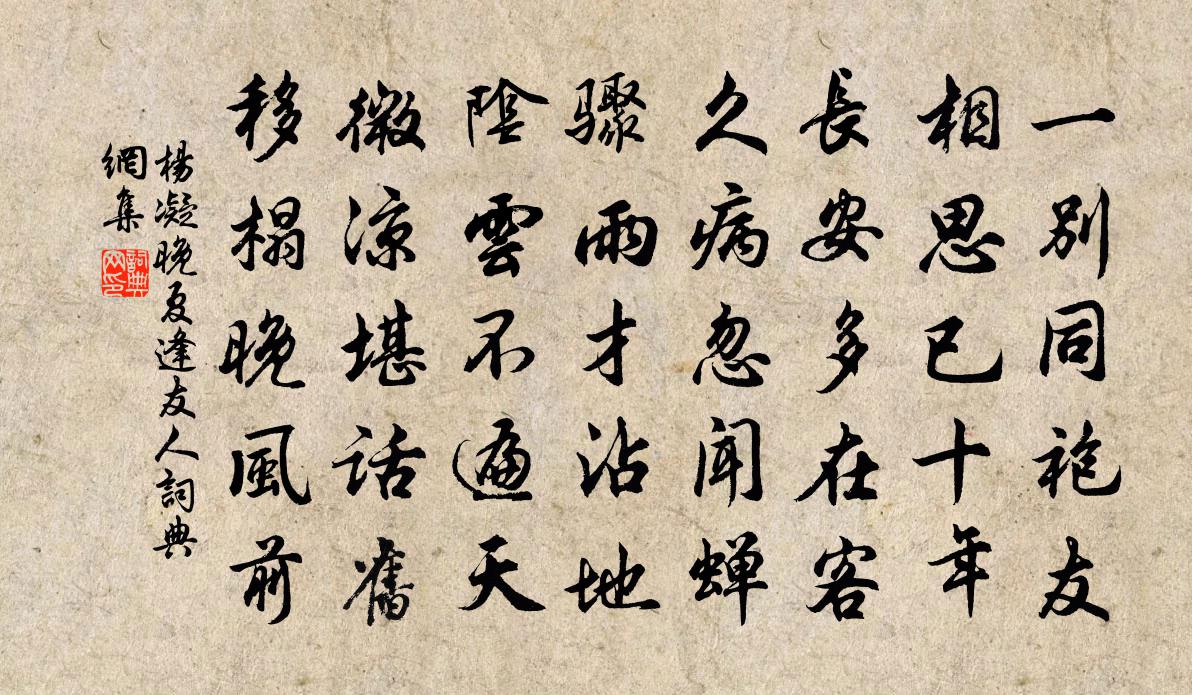 一別同袍友
相思已十年
長安多在客
久病忽聞蟬
驟雨才沾地
陰雲不遍天
微涼堪話舊
移榻晚風前
楊凝晚夏逢友人詞典
網集
詞典
网印